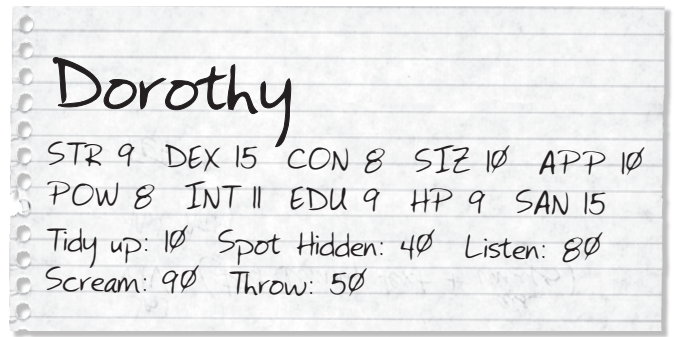 Dorothy
STR 9 DEX 15 CON 8 SIZ 10 APP 10
POW 8 INT 11 EDU 9 HP 9 SAN 15
Tidy up: 10 Spot Hidden: 40 Listen: 80
Scream: 90 Throw: 50